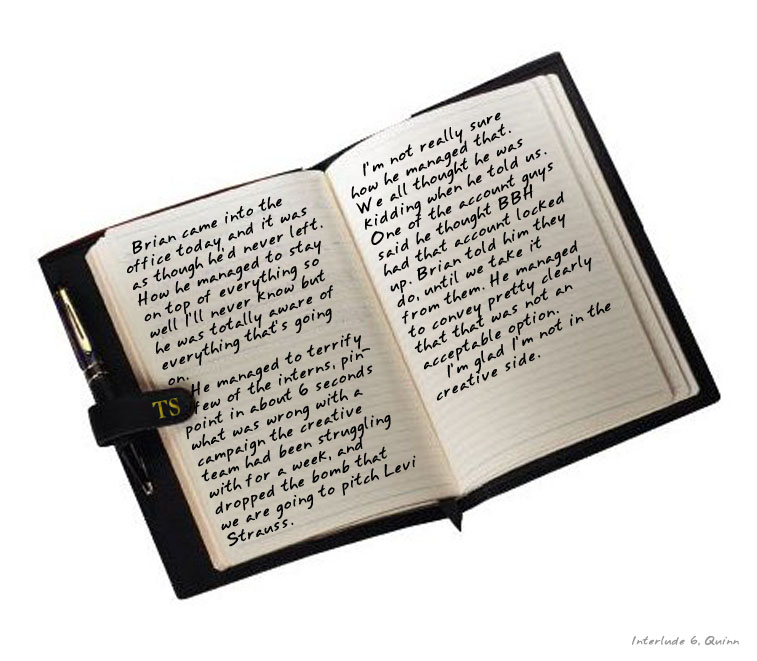 Brian came into the
office today, and it was
as though he'd never left.
How he managed to stay
on top of everything so
well I'll never know but
he was totally aware of
everything that's going
on.
He managed to terrify
few of the interns, pin-
point in about 6 seconds
what was wrong with a
campaign the creative
team had been struggling
with for a week, and
dropped the bomb that
we are going to pitch Levi
Strauss.
I'm not really sure
how he managed that.
We all thought he was
kidding when he told us.
One of the account guys
said he thought BBH
had that account locked
up. Brian told him they
do, until we take it
from them. He managed
to convey pretty clearly
that that was not an
acceptable option.
I'm glad I'm not in the
creative side.
TS
Interlude 6, Quinn